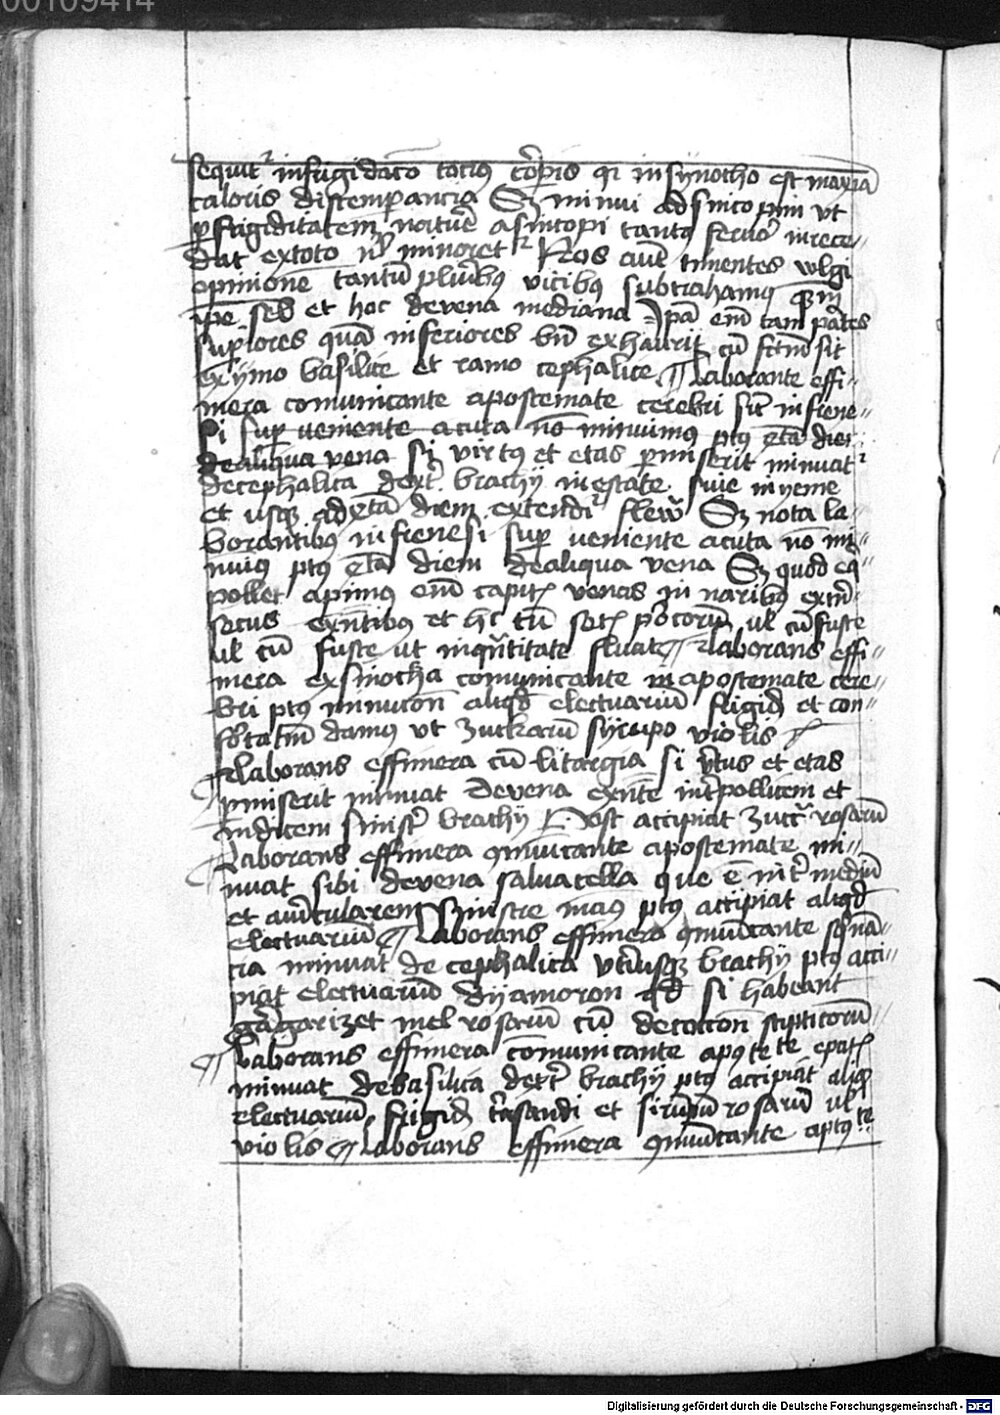 00109414
sequit᷑ infrigidac̄o tocius cor̄pis qr in synocho est maxi͞a
caloris distemperancia Sꝫ minui ad sincopim ut
ꝑ frigiditatem natur̄e a sincopi tanta fervor in rece〃
dat ex toto ul̄ minoret᷑ Nos aut̄e timentes wlgi
opinionē tantū plurībꝰ vicibꝰ subtrahamꝰ qm̄
ipē sed et hoc de vena mediana Ip̄a em̄ tam par̄tes
supīores quā inferiores bn̄ exhaurit cū sit
ex ymo basilice et ramo cephalice ¶ Laborante effi〃
mera comunicante apostemate cerebri sic̄ in frene〃
si sup veniente acuta nō minuimꝰ ptꝰ die
de aliqua vena si virtꝰ et etas ꝑmiserit minuat᷑
de cephalica dext̄ brachij in estate sive in yeme
et usqꝫ ad diem extendit᷑ Sꝫ nota la〃
borantibꝰ in frenesi sup veniente acuta nō mi〃
nuiꝰ ptꝰ diem de aliqua vena Sꝫ quod eq〃
pollet apimꝰ em̄ capitꝭ venas in naribꝰ extrī〃
secus exn̄tibꝰ et hc̄ cū setꝭ porcorū ul cū fuste
ul cū fuste ut in q̄ntitate fluat ¶ Laborans effi〃
mera ex sinocha comunicante in apostemate cere〃
bri ptꝰ minucōn aliqd̄ electuariū frigid et con〃
fortatm̄ damꝰ ut zuckarū syrupo violis
¶ Laborans effimera cū litargia si v̄tus et etas
ꝑmiserit minuat de vena exn̄te int̄ pollicem et
indicem sinist̄ brachij Post accipiat zucc̄ rosarū
¶ Laborans effimera qmūicante apostemate mi〃
nuat sibi de vena salvatella que ē int̄ mediū
et auricularem sinistre manꝰ ptꝰ accipiat aliqd̄
electuariū ¶ Laborans effimera qmūicante sqͥnā〃
cia minuat de cephalica utriusqꝫ brachij ptꝰ acci〃
piat electuariū dyamoron qd̄ si habeant
gargarizet mel rosarū cū decoccōn stipticorū
¶ Laborans effimera cōmunicante apꝰtete epatꝭ
minuat de basilica dext̄ brachij ptꝰ accipiat aliqͩ
electuariū frigid t̄asandi et sirupū rosarū ul
violis ¶ Laborans effimera qmūicante aptꝰte
Digitalisierung gefördert durch die Deutsche Forschungsgemeinschaft - DFG